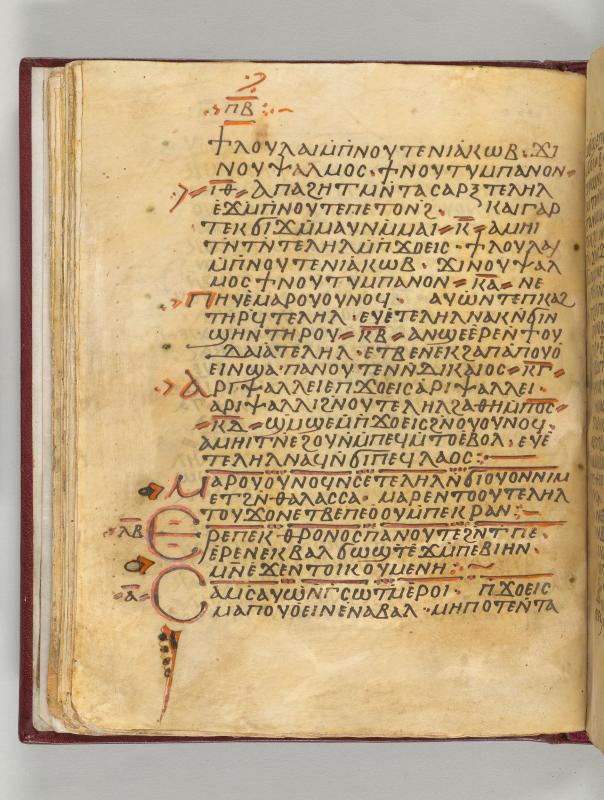 ⲡ̅ⲃ̅
ϯⲗⲟⲩⲗⲁⲓⲙ̄ⲡⲛⲟⲩⲧⲉⲛⲓⲁⲕⲱⲃ · ϫⲓ
ⲛⲟⲩⲯⲁⲗⲙⲟⲥ · ϯⲛⲟⲩⲧⲩⲙⲡⲁⲛⲟⲛ
ⲓ̅ⲑ̅ = ⲁⲡⲁϩⲏⲧⲙⲛⲧⲁⲥⲁⲣⲝⲧⲉⲗⲏⲗ
ⲉϫⲙⲡⲛⲟⲩⲧⲉⲡⲉⲧⲟⲛϩ · ⲕⲁⲓⲅⲁⲣ
ⲧⲉⲕϭⲓϫⲙⲙⲁⲩⲛⲙⲙⲁⲓ = ⲕ̅ = ⲁⲙⲏⲓ
ⲧⲛⲧⲛⲧⲉⲗⲏⲗⲙⲡϫⲟⲉⲓⲥ · ϯⲗⲟⲩⲗⲁⲓ
ⲙ̄ⲡⲛⲟⲩⲧⲉⲛⲓⲁⲕⲱⲃ · ϫⲓⲛⲟⲩⲯⲁⲗ
ⲙⲟⲥϯⲛⲟⲩⲧⲩⲙⲡⲁⲛⲟⲛ = ⲕ̅ⲁ̅ = ⲛⲉ
ⲡⲏⲩⲉⲙⲁⲣⲟⲩⲟⲩⲛⲟϥ · ⲁⲩⲱⲛⲧⲉⲡⲕⲁϩ
ⲧⲏⲣϥⲧⲉⲗⲏⲗ · ⲉⲩⲉⲧⲉⲗⲏⲗⲛⲁⲕⲛ̄ϭⲓⲛ
ϣⲏⲛⲧⲏⲣⲟⲩ = ⲕ̅ⲃ̅ = ⲁⲛϣⲉⲉⲣⲉⲛϯⲟⲩ
ⲇⲁⲓⲁⲧⲉⲗⲏⲗ · ⲉⲧⲃⲉⲛⲉⲕϩⲁⲡⲁⲡⲟⲩⲟ
ⲉⲓⲛϣⲁ · ⲡⲁⲛⲟⲩⲧⲉⲛⲛⲇⲓⲕⲁⲓⲟⲥ = ⲕ̅ⲅ̅ =
ⲁⲣⲓⲯⲁⲗⲗⲉⲓⲉⲡϫⲟⲉⲓⲥⲁⲣⲓⲯⲁⲗⲗⲉⲓ ·
ⲁⲣⲓⲯⲁⲗⲗⲓϩⲛⲟⲩⲧⲉⲗⲏⲗϩⲁⲑⲏⲙⲡⲟ̅ⲥ̅ =
= ⲕ̅ⲇ̅ = ϣⲙϣⲉⲙ̄ⲡϫⲟⲉⲓⲥϩⲛⲟⲩⲟⲩⲛⲟϥ ·
ⲁⲙⲏⲓⲧⲛⲉϩⲟⲩⲛⲙ̄ⲡⲉϥⲙ̄ⲧⲟⲉⲃⲟⲗ · ⲉⲩⲉ
ⲧⲉⲗⲏⲗⲛⲁϥⲛ̄ϭⲓⲡⲉϥⲗⲁⲟⲥ :
ⲙⲁⲣⲟⲩⲟⲩⲛⲟϥⲛⲥⲉⲧⲉⲗⲏⲗⲛ̄ϭⲓⲟⲩⲟⲛⲛⲓⲙ
ⲉⲧϩⲛ̄ⲑⲁⲗⲁⲥⲥⲁ · ⲙⲁⲣⲉⲛⲧⲟⲟⲩⲧⲉⲗⲏⲗ
ⲧⲟⲩϫⲟⲛⲉⲧⲃⲉⲡⲉⲟⲟⲩⲙⲡⲉⲕⲣⲁⲛ :
ⲗ̅ⲃ̅ ⲉⲣⲉⲡⲉⲕⲑⲣⲟⲛⲟⲥⲡⲁⲛⲟⲩⲧⲉϩⲛⲧⲡⲉ ·
ⲉⲣⲉⲛⲉⲕⲃⲁⲗϭⲱϣⲧⲉϫⲙⲡⲉⲃⲓⲏⲛ ·
ⲙⲛⲉϫⲉⲛⲧⲟⲓⲕⲟⲩⲙⲉⲛⲏ :
ⲁ̅ ⲥⲁⲙⲥⲁⲩⲱⲛⲅ̄ⲥⲱⲧⲙⲉⲣⲟⲓ · ⲡϫⲟⲉⲓⲥ
ⲙⲁⲡⲟⲩⲟⲉⲓⲛⲉⲛⲁⲃⲁⲗ · ⲙⲏⲡⲟⲧⲉⲛⲧⲁ